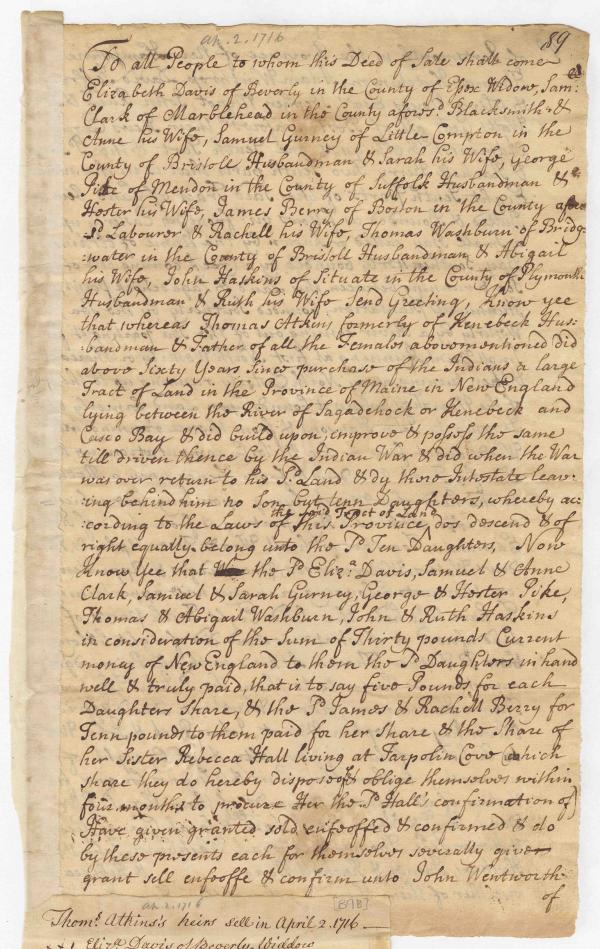 ap. 2. 1716
89
To all People to whom this Deed of Sale shall come
Elizabeth Davis of Beverly in the County of Essex Widow, Sam:ll
Clark of Marblehead in the County afores.d Blacksmith &
Anne his Wife, Samuel Gurney of Little-Compton in the
County of Bristoll Husbandman & Sarah his Wife, George
Pike of Mendon in the County of Suffolk Husbandman &
Hester his Wife, James Berry of Boston in the County afore
:s.d Labourer & Rachell his Wife, Thomas Washburn of Bridg-
:water in the County of Bristoll Husbandman & Abigail
his Wife, John Haskins of Situate in the County of Plymouth
Husbandman & Ruth his Wife Send Greeting, Know yee
that whereas Thomas Atkins formerly of Kenebeck Hus:
:bandman & Father of all the Females abovementioned did
above Sixty Years Since purchase of the Indians a large
Tract of Land in the Province of Maine in New England
lying between the River of Sagadehock or Kenebeck and
Casco Bay & did build upon, improve & possess the same
till driven thence by the Indian War & did when the War
was over return to his s.d Land & dy there Intestate leav-
:ing behind him no Son but tenn Daughters, whereby ac:
the said Tract of Land
:cording to the Laws of this Province, dos descend & of
right equally belong unto the s.d Ten Daughters, Now
Know Yee that We the s.d Eliz.a Davis, Samuel & Anne
Clark, Samuel & Sarah Gurney, George & Hester Pike,
Thomas & Abigail Washburn, John & Ruth Haskins
in consideration of the Sum of Thirty pounds Current
money of New England to them the s.d Daughters in hand
well & truly paid, that is to say five Pounds for each
Daughters Share, & the s.d James & Rachell Berry for
Tenn pounds to them paid for her Share & the Share of
her Sister Rebecca Hall living at Tarpolin Cove (which
share they do hereby dispose of & oblige themselves within
four months to procure Her the s.d Hall's confirmation of)
Have given granted sold enfeoffed & confirmed & do
by these presents each for themselves severally give
grant sell enfeoffe & confirm unto John Wentworth
of
ap. 2. 1716
[89B]
Thom.s Atkins's heirs sell in April 2. 1716
Eliz.a Davis of Beverly, Widdow